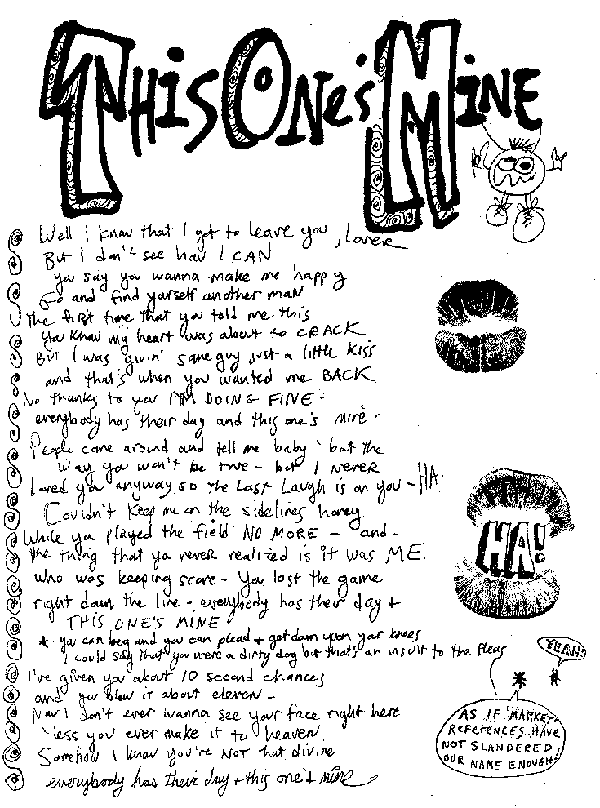 This One's Mine
Well i know that I got to leave you, lover
But I don't see how I CAN
you say you wanna make me happy
Go and find yourself another man
The first time that you told me this
You know my heart was about to CRACK
But I was givin' some guy just a little kiss
and that's when you wanted me BACK
No thanks to you I'M DOING FINE -
everybody has their day and this one's mine -
People come around and tell me baby 'bout the
way you won't be true - but I NEVER
Loved you anyway so the Last Laugh is on you - HA!
Couldn't keep me on the sidelines honey
While you played the field NO MORE - and -
the thing that you never realized is it was ME
who was keeping score - You lost the game
right down the line - everybody has their day +
THIS ONE'S MINE
* you can beg and you can plead + get down upon your knees
I could say that you were a dirty dog but that's an insult to the fleas
I've given you about 10 second chances
and you blow it about eleven -
Now I don't ever wanna see your face right here
'less you ever make it to heaven
Somehow I know you're NOT that divine
everybody has their day + this one's mine
HA!
YEAH!
* AS IF MARKET
REFERENCES HAVE
NOT SLANDERED
OUR NAME ENOUGH!